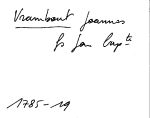 Vrambout Joannes
fs Jan Bapte
1785-19